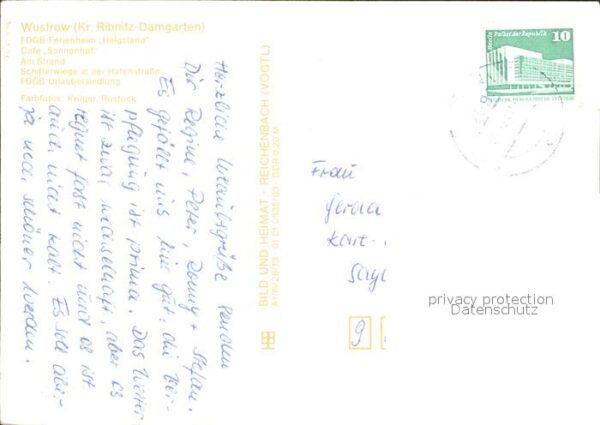 Wustrow (Kr. Ribnitz-Damgarten)
FDGB-Ferienheim „Helgoland"
Cafe „Sonnenhof"
Am Strand
Schifferwiege in der Hafenstraße
FDGB-Urlaubersiedlung
Farbfotos: Krüger, Rostock
Herzliche Urlaubsgrüße senden
Dir Regina, Peter, Ronny + Stefan.
Es gefällt uns hier gut, die Ver-
pflegung ist prima. Das Wetter
ist zwar wechselhaft, aber es
regnet fast nicht und es ist
auch nicht kalt. Es soll aber
ja noch schöner werden.
BILD UND HEIMAT · REICHENBACH (VOGTL)
DDR 0,20 M
Frau
Gerda
Karl-
9
Berlin Palast der Republik
10
DEUTSCHE DEMOKRATISCHE REPUBLIK
privacy protection
Datenschutz